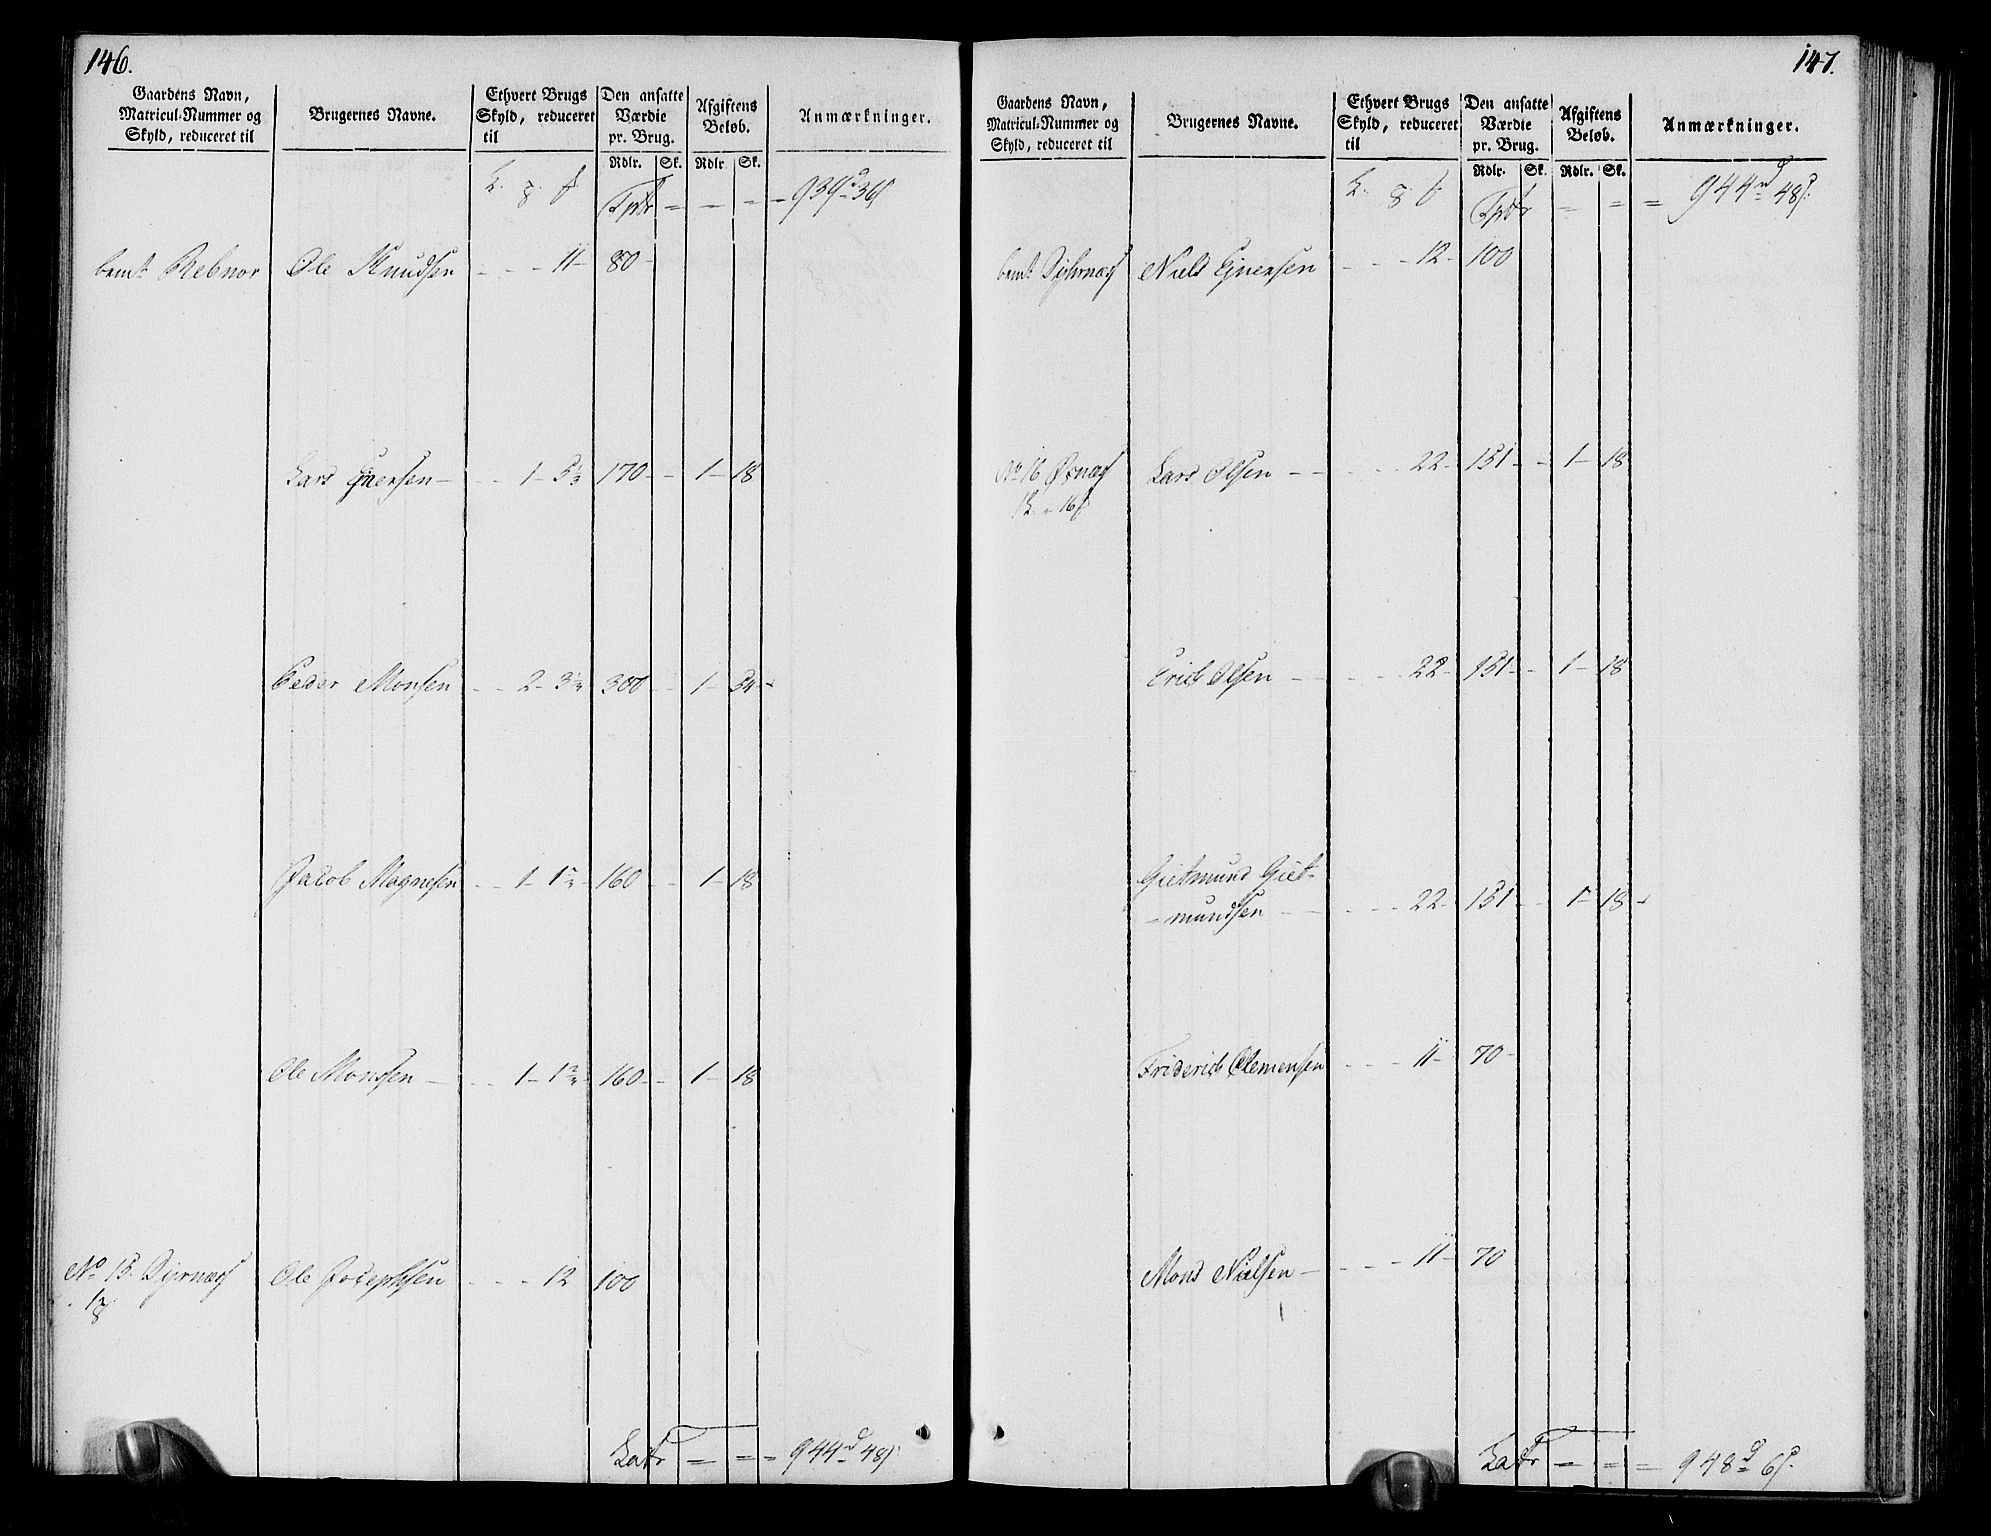 146.
Gaardens Navn, Matricul-Nummer og Skyld, reduceret til
Brugernes Navne.
Ethvert Brugs Skyld, reduceret til
Den ansatte Værdie pr. Brug.
Afgiftens Beløb.
Anmærkninger.
Rdlr. Sk. Rdlr. Sk.
Tpbr = = = = 939 d 36 s
bemt Rebnor Ole Knudsen - - - 11 - 80 -
Lars Ejnersen - - - 1 - 5 1/3 170 - - 1 - 18
Peder Monsen - - 2 - 300 - - 1 - 54 -
Jacob Magnesen - - 1 - 160 - - 1 - 18
Ole Monsen - - - 1 - 160 - - 1 - 18
No 15. Dyrnæss Ole Josephsen - - - 12 100
Latr = = = 944 d 48 s
147.
Gaardens Navn, Matricul-Nummer og Skyld, reduceret til
Brugernes Navne.
Ethvert Brugs Skyld, reduceret til
Den ansatte Værdie pr. Brug.
Afgiftens Beløb.
Anmærkninger.
Rdlr. Sk. Rdlr. Sk.
Tpbr = = = 944 d 48 s
bemt Dyhrnæss Niels Ejnersen - - - 12 - 100
No 16 Øxnæss Lars Olsen - - - 22 - 151 - - 1 - 18
Erich Olsen - - - 22 - 151 - - 1 - 18
Gietmund Giet-
- mundsen - - - 22 - 151 - - 1 - 18 -
Friderich Clemensen - - - 11 - 70 -
Mons Nielsen - - - 11 - 70
Latr = = = 948 d 6 s.